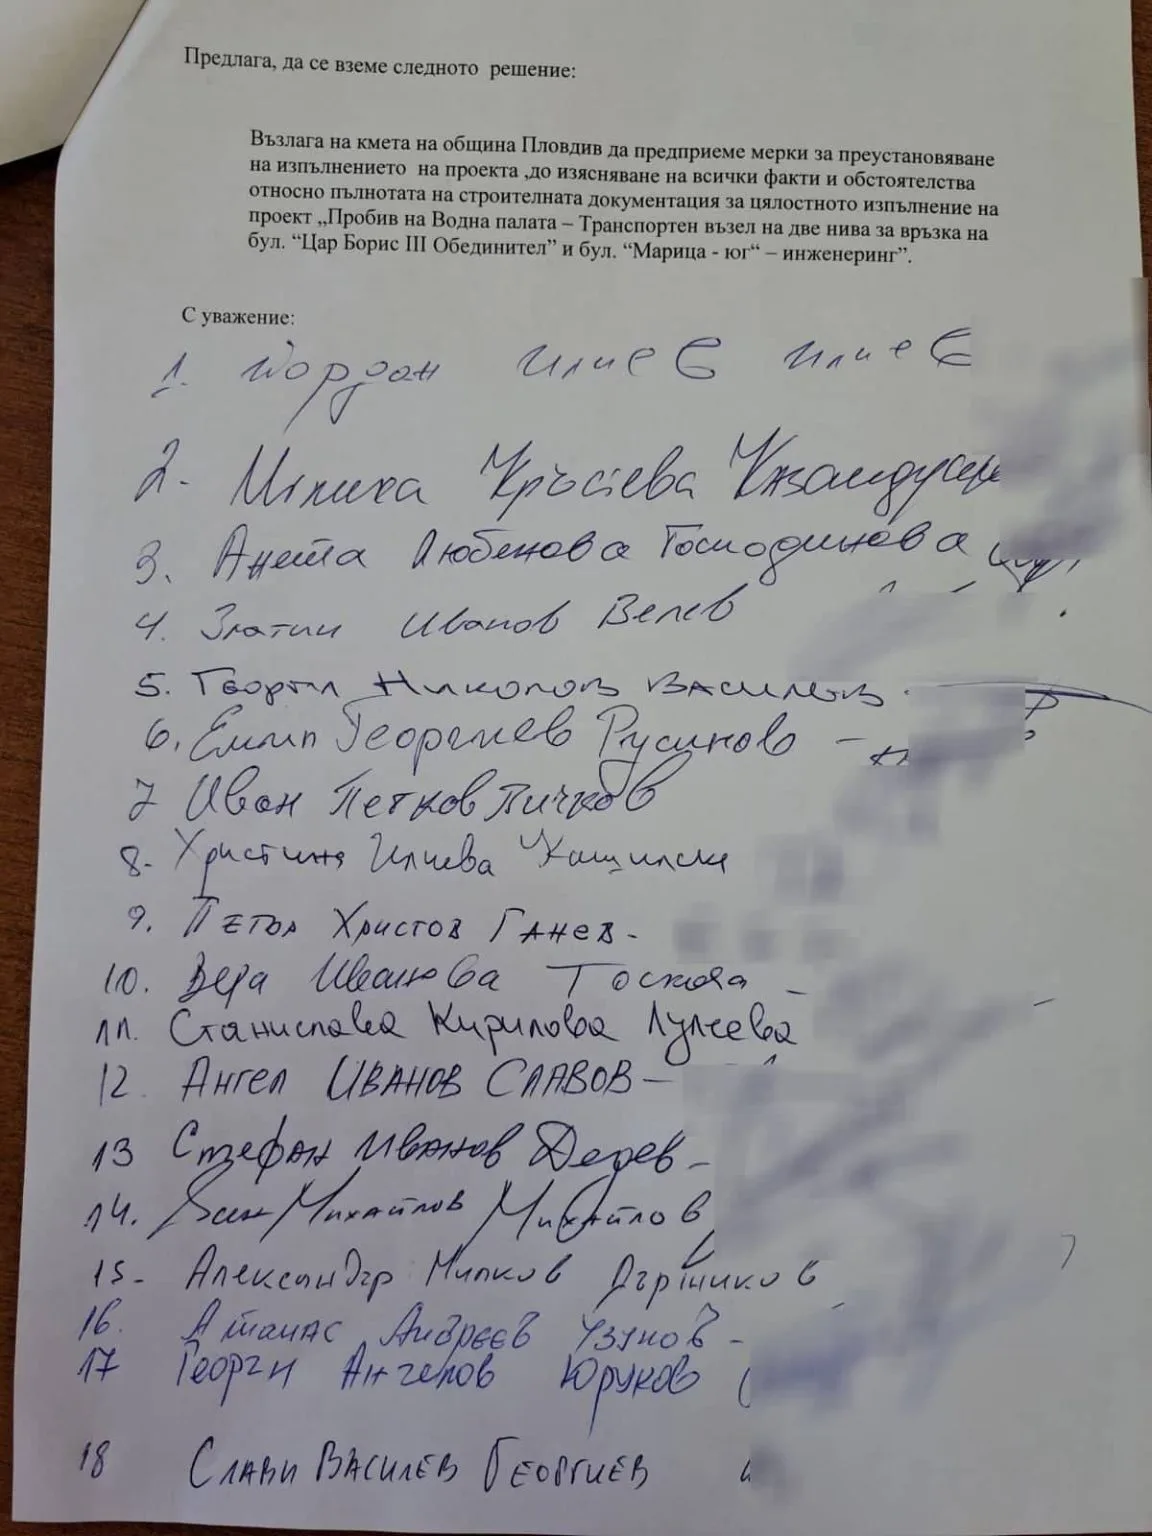 Предлага, да се вземе следното решение:
Възлага на кмета на община Пловдив да предприеме мерки за преустановяване
на изпълнението на проекта ,до изясняване на всички факти и обстоятелства
относно пълнотата на строителната документация за цялостното изпълнение на
проект „Пробив на Водна палата – Транспортен възел на две нива за връзка на
бул. “Цар Борис III Обединител” и бул. “Марица - юг“ – инженеринг”.
С уважение:
1. Йордан Илиев Илиев
2. Милиха
3. Анета Любенова Господинова
4. Златин Иванов Велев
5. Георги Николов Василев
6. Емил Георгиев Русинов -
7 Иван Петков Пичков
8. Христина Илиева
9. Петър Христов Ганев -
10. Вера Иванова Тоскова -
11. Станислава Кирилова Лулчева
12. Ангел Иванов Славов -
13 Стефан Иванов Дедев -
14. Михайлов Михайлов
15 - Александър Милков Държиков
16. Атанас Андреев Узунов -
17 Георги Ангелов Юруков
18 Слави Василев Георгиев